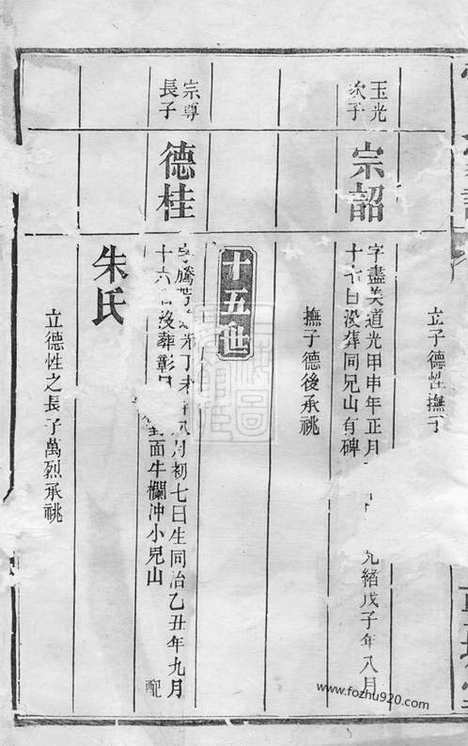 立子德性撫子
玉光
次子
宗韶
字盡美道光甲申年正月
光緒戊子年八月
十七日沒葬同兄山有碑
撫子德後承祧
十五世
宗尊
長子
德桂
字騰
丁未年八月初七日生同治乙丑年九月
十六日沒葬彰
對面牛欄冲小兒山
配
朱氏
立德性之長子萬烈承祧
www.fozhu920.com